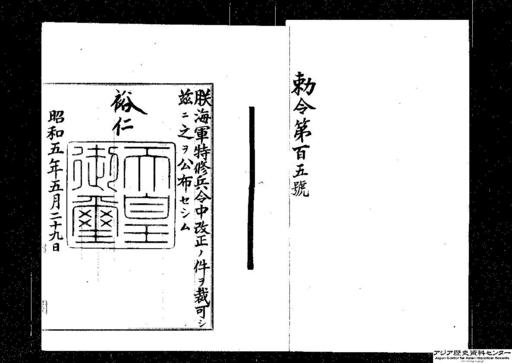 勅令第百五號
朕海軍特修兵令中改正ノ件ヲ裁可シ
茲ニ之ヲ公布セシム
裕仁
天皇
御璽
昭和五年五月二十九日
アジア歴史資料センター
Japan Center for Asian Historical Records